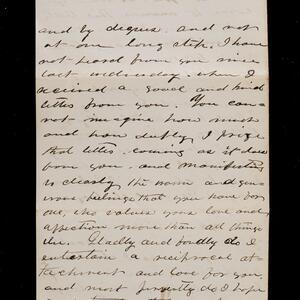 and by degrees, and not
at one long step. I have
not heard from you since
last Wednesday when I
received a good and kind
letter from you. You can
not imagine how much
and how deeply I prize
that letter. coming as it does
from you, and manifesting
so clearly the warm and gen-
erous feelings that you have for
one, who values your love and
affection more than all things
else. Gladly and fondly do I
entertain a reciprocal at-
tachment and love for you,
and most fervently do I hope